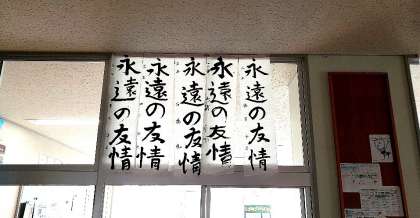 永遠の友情
永遠の友情
永遠の友情
永遠の友情
永遠の友情